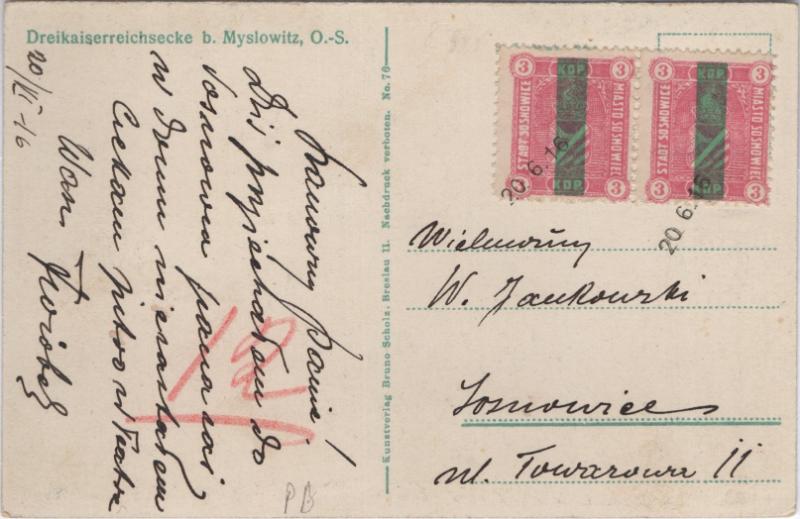 Dreikaiserreichsecke b. Myslowitz, O.-S.
20/VI-16
Szanowny Panie!
Dziś przyjechałam do
Sosnowca pana zaś
w domu nie zastałam
Czekam jutro w Teatrze
Wan.
Kunstverlag Bruno Scholz, Breslau 11. Nachdruck verboten. No. 76
3 KDP 3
STADT SOSNOWICE
MIASTO SOSNOWIEC
3 KDP 3
3 KDP 3
STADT SOSNOWICE
MIASTO SOSNOWIEC
3 KDP 3
20.6.16
20.6.16
Wielmożny
W. Jankowski
Sosnowice
ul. Towarowa 11
PB